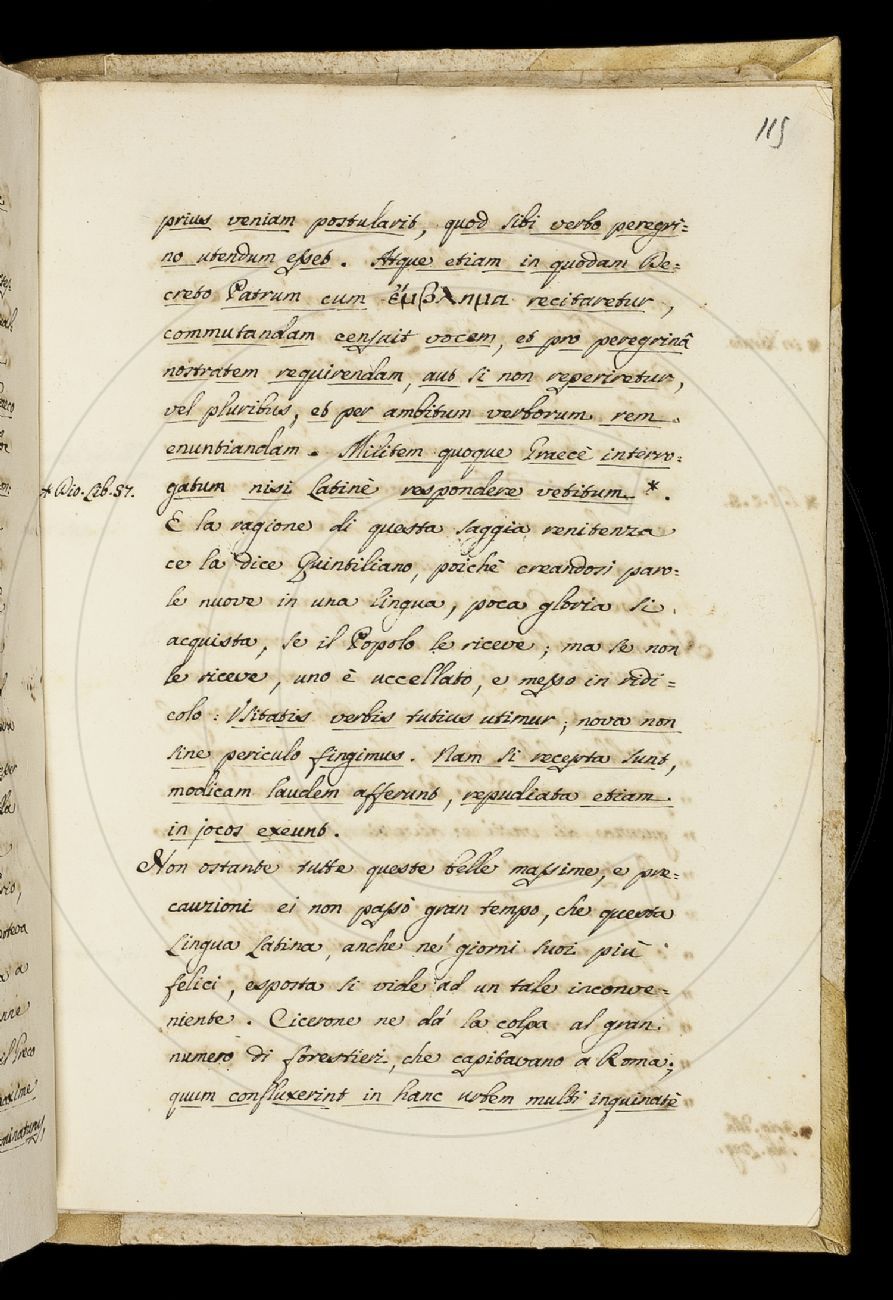 115
prius veniam postularit, quod sibi verbo peregri=
no utendum esset. Atque etiam in quodam De=
creto Patrum cum ἔμβλημα recitaretur,
commutandam censuit vocem, et pro peregrinâ
nostratem requirendam, aut si non reperiretur,
vel pluribus, et per ambitum verborum rem
enuntiandam. Militem quoque Graecè interro=
* Dio. Lib. 57.
gatum nisi Latinè respondere vetitum *.
E la ragione di questa saggia renitenza
ce la dice Quintiliano, poichè creandosi paro=
le nuove in una lingua, poca gloria si
acquista, se il Popolo le riceve; ma se non
le riceve, uno è uccellato, e messo in ridi=
colo: Usitatis verbis tutius utimur; nova non
sine periculo fingimus. Nam si recepta sunt,
modicam laudem afferunt, repudiata etiam
in jocos exeunt.
Non ostante tutte queste belle massime, e pre=
cauzioni ei non passò gran tempo, che questa
Lingua Latina, anche ne' giorni suoi più
felici, esposta si vide ad un tale inconve=
niente. Cicerone ne dà la colpa al gran
numero di forestieri, che capitavano a Roma;
quum confluxerint in hanc urbem multi inquinatè